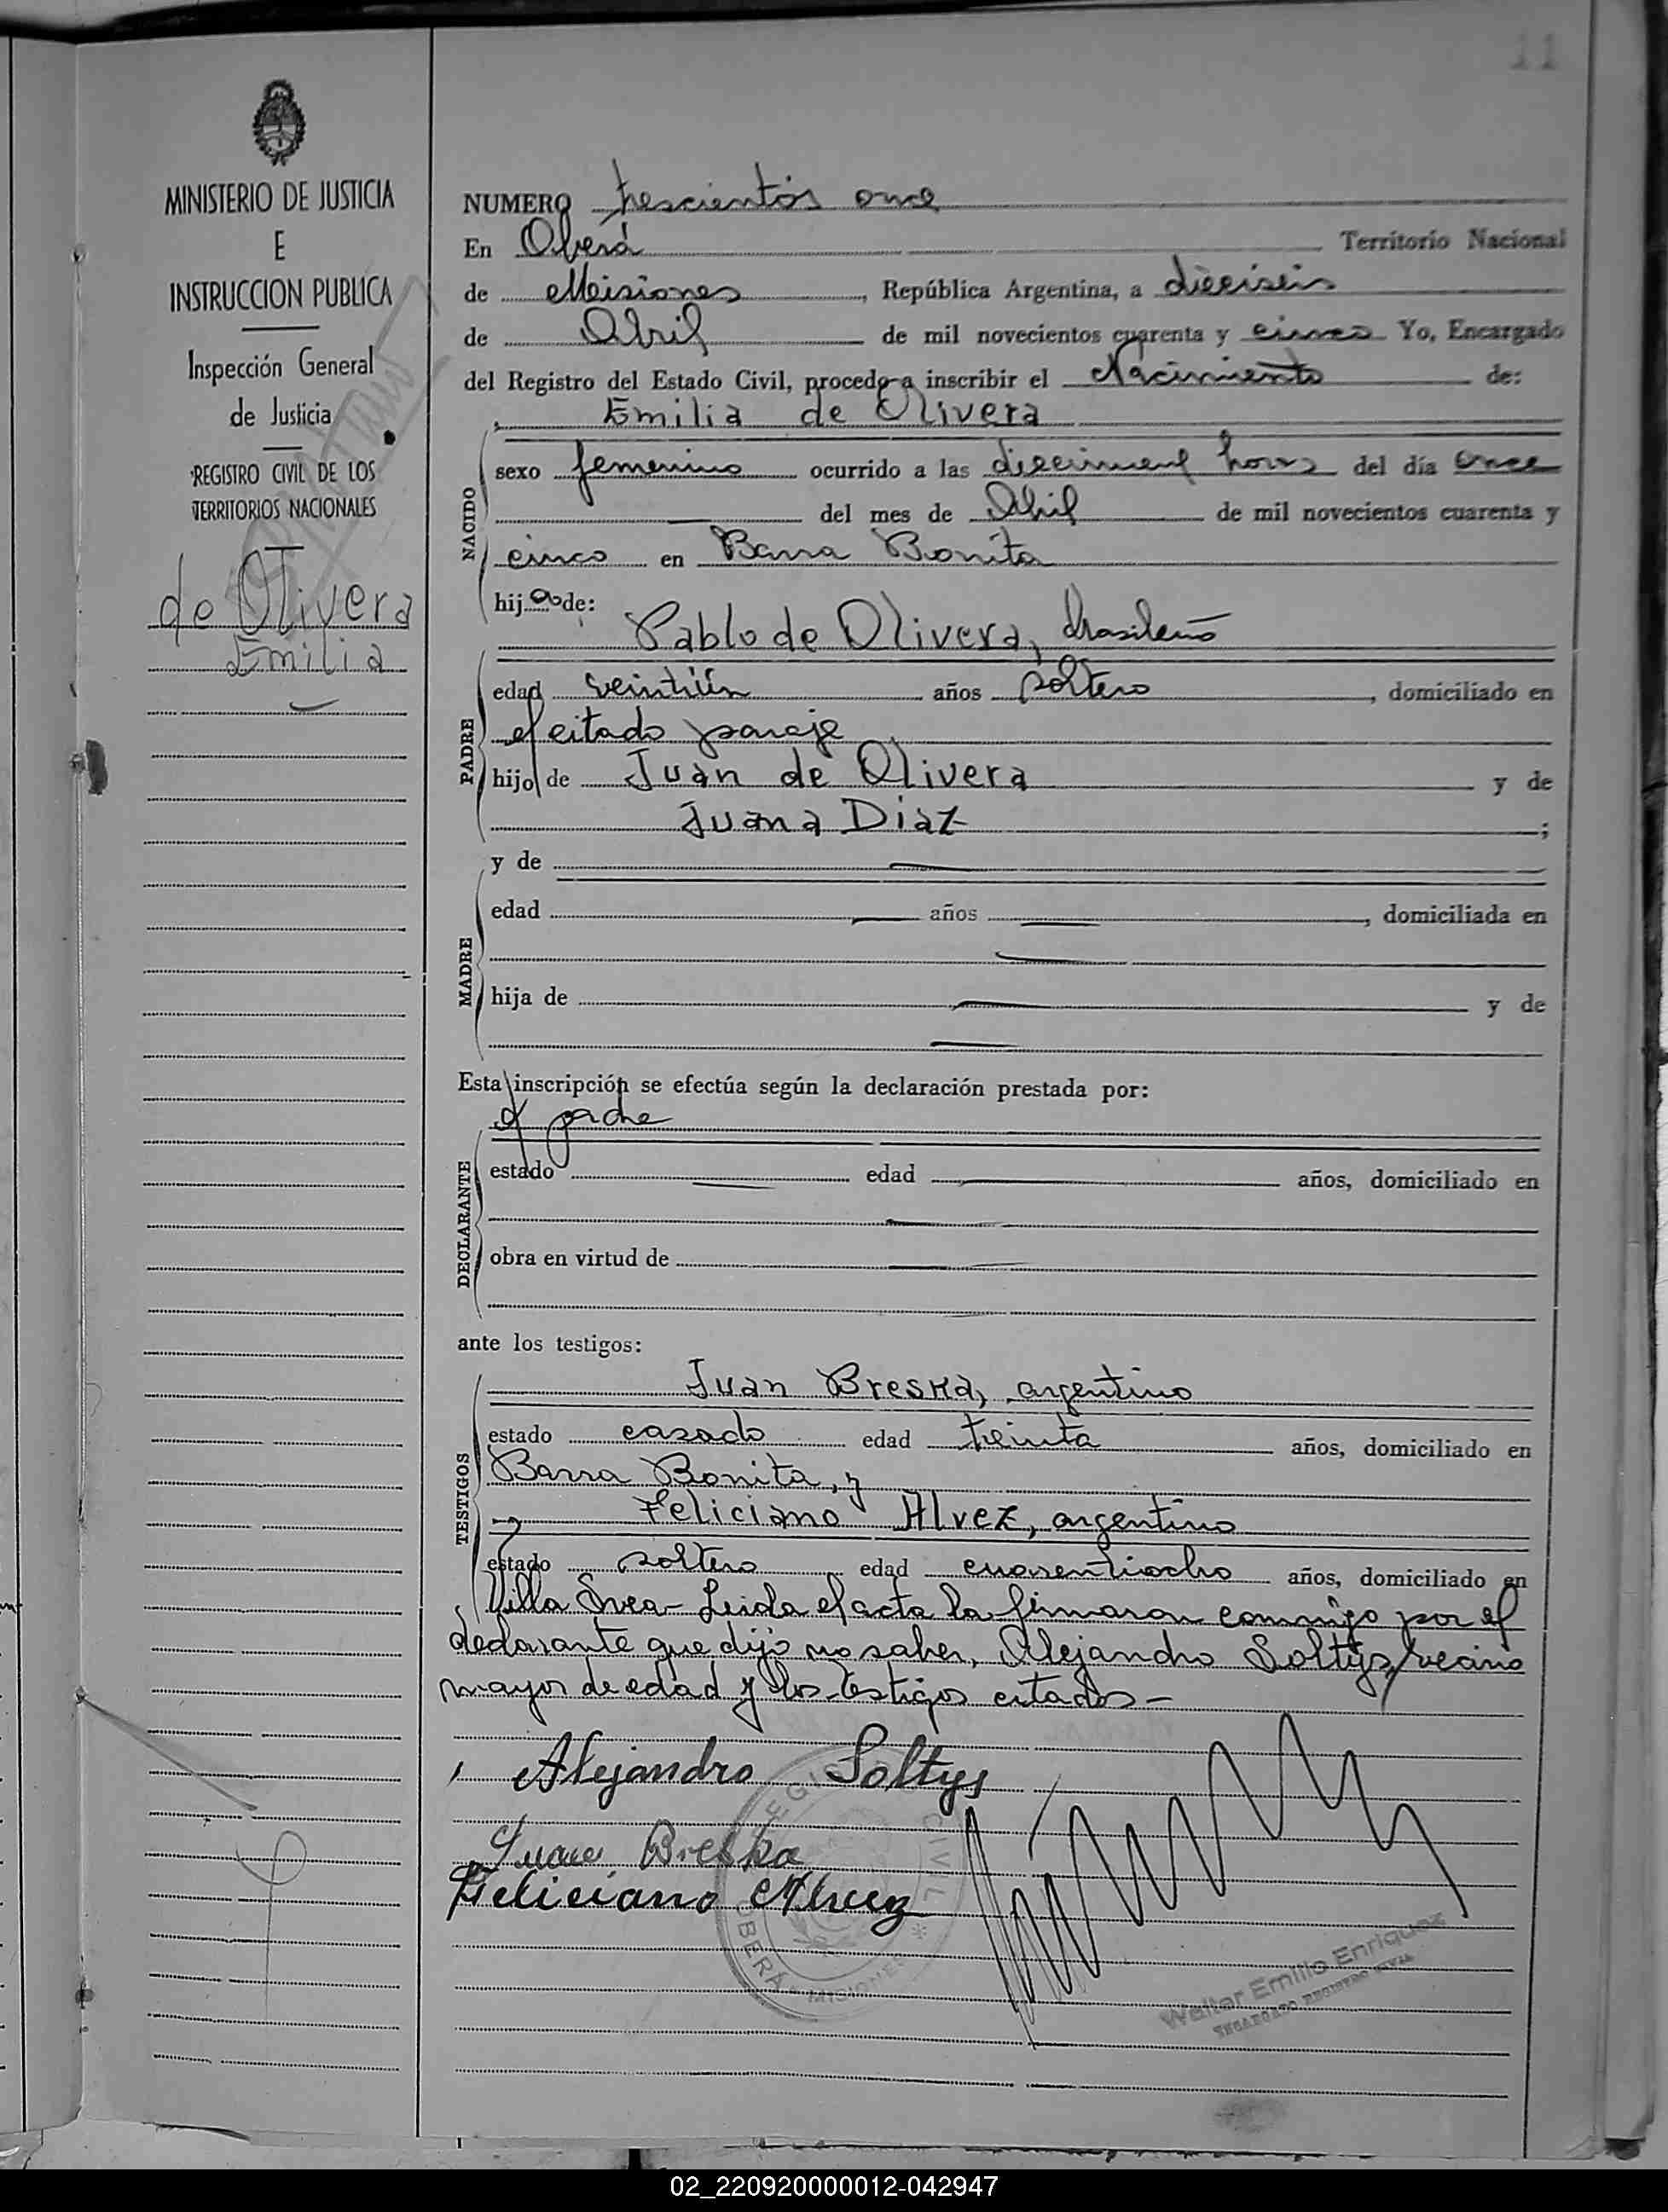 11
MINISTERIO DE JUSTICIA
E
INSTRUCCION PUBLICA
Inspección General
de Justicia
REGISTRO CIVIL DE LOS
TERRITORIOS NACIONALES
de Olivera
Emilia
NUMERO trescientos once
En Oberá Territorio Nacional
de Misiones, República Argentina, a dieciseis
de Abril de mil novecientos cuarenta y cinco Yo, Encargado
del Registro del Estado Civil, procedo a inscribir el Nacimiento de:
Emilia de Olivera
NACIDO
sexo femenino ocurrido a las diecinueve horas del día once
del mes de Abril de mil novecientos cuarenta y
cinco en Barra Bonita
hija de:
Pablo de Olivera, brasileño
PADRE
edad veintiún años soltero, domiciliado en
el citado paraje
hijo de Juan de Olivera y de
Juana Diaz ;
y de
MADRE
edad años , domiciliada en
hija de y de
Esta inscripción se efectúa según la declaración prestada por:
el padre
DECLARANTE
estado edad años, domiciliado en
obra en virtud de
ante los testigos:
TESTIGOS
Juan Breska, argentino
estado casado edad treinta años, domiciliado en
Barra Bonita, y
Feliciano Alvez, argentino
estado soltero edad cuarentiocho años, domiciliado en
Villa Svea- Leida el acta la firmaron conmigo por el
declarante que dijo no saber, Alejandro Soltys, vecino
mayor de edad y los testigos citados-
Alejandro Soltys
Juan Breska
Feliciano Alvez
REGISTRO CIVIL
OBERÁ - MISIONES
Walter Emilio Enriquez
ENCARGADO REGISTRO CIVIL
02_220920000012-042947